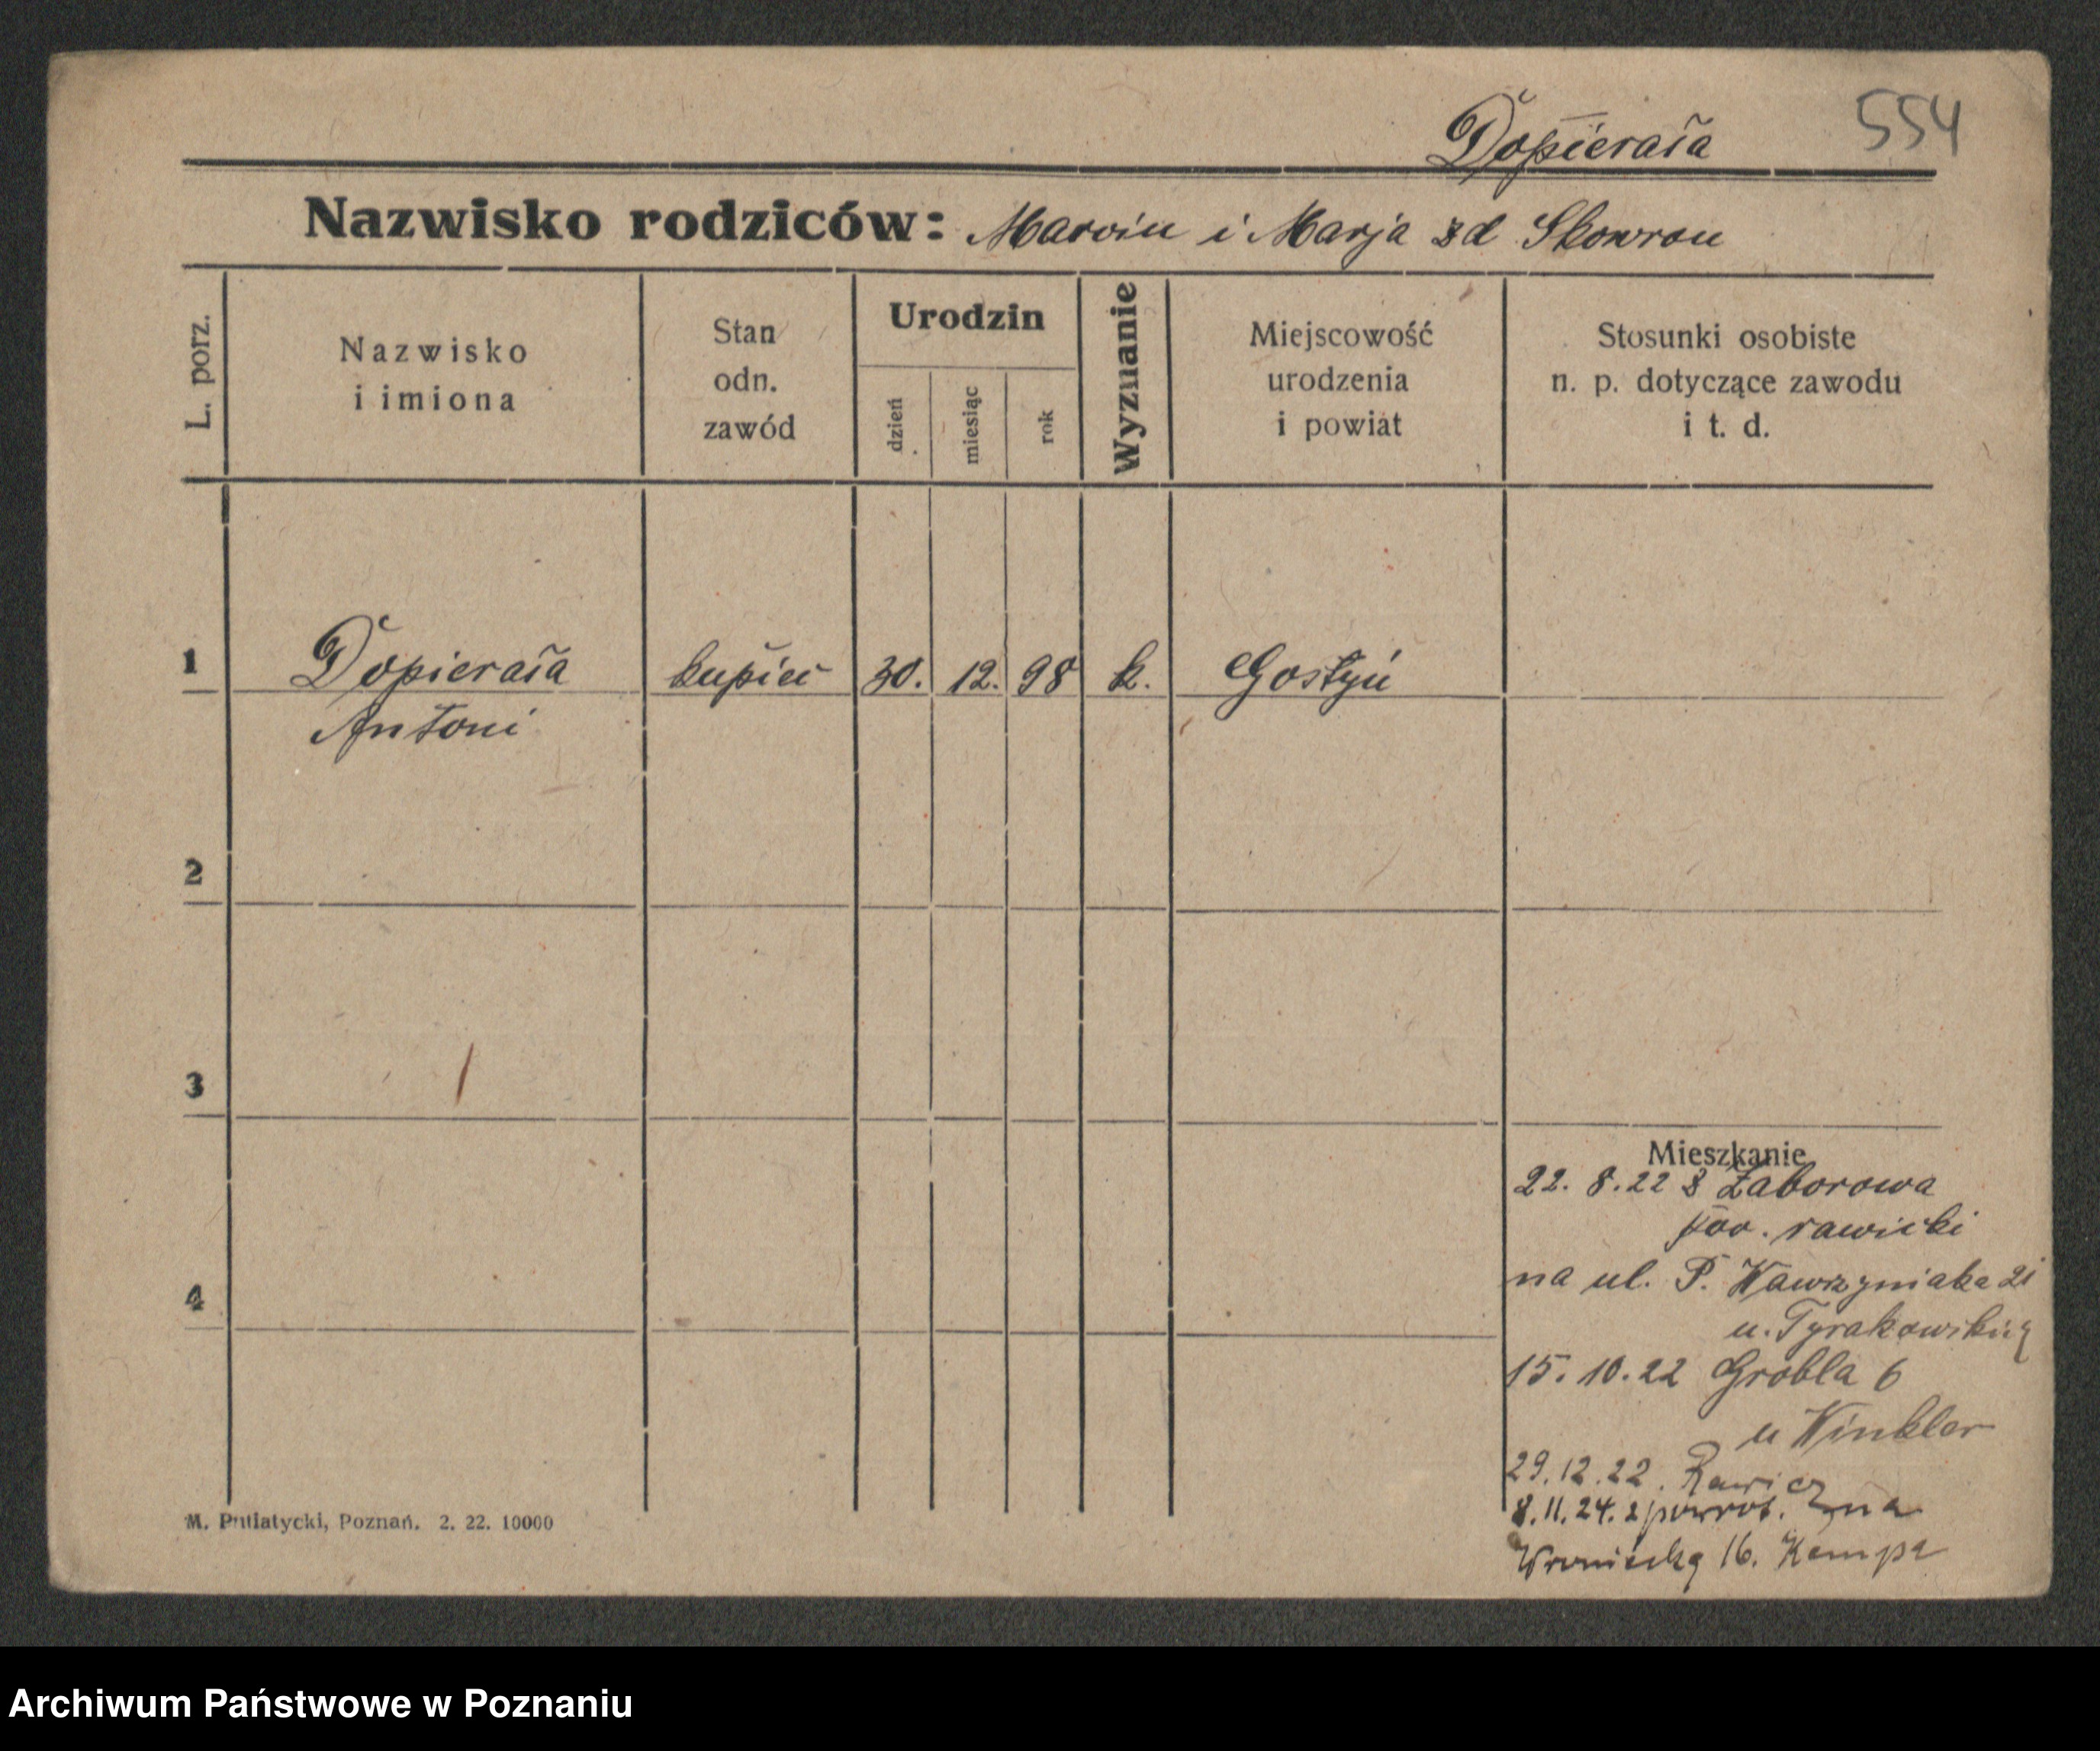 Dopierała 554
Nazwisko rodziców: Marcin i Marja zd Skowron
L. porz.
Nazwisko
i imiona
Stan
odn.
zawód
Urodzin
dzień
miesiąc
rok
Wyznanie
Miejscowość
urodzenia
i powiat
Stosunki osobiste
n. p. dotyczące zawodu
i t. d.
1 Dopierała kupiec 30. 12. 98 k. Gostyń
Antoni
2
3
4
Mieszkanie
22. 8. 22 z Zaborowa
pow. rawicki
na ul. P. Wawrzyniaka 21
u. Tyrakowskiej
15. 10. 22 Grobla 6
u Winkler
29. 12. 22. Rawicz
8. 11. 24. z powrot. na
Wroniecką 16. Kempa
M. Putiatycki, Poznań. 2. 22. 10000
Archiwum Państwowe w Poznaniu